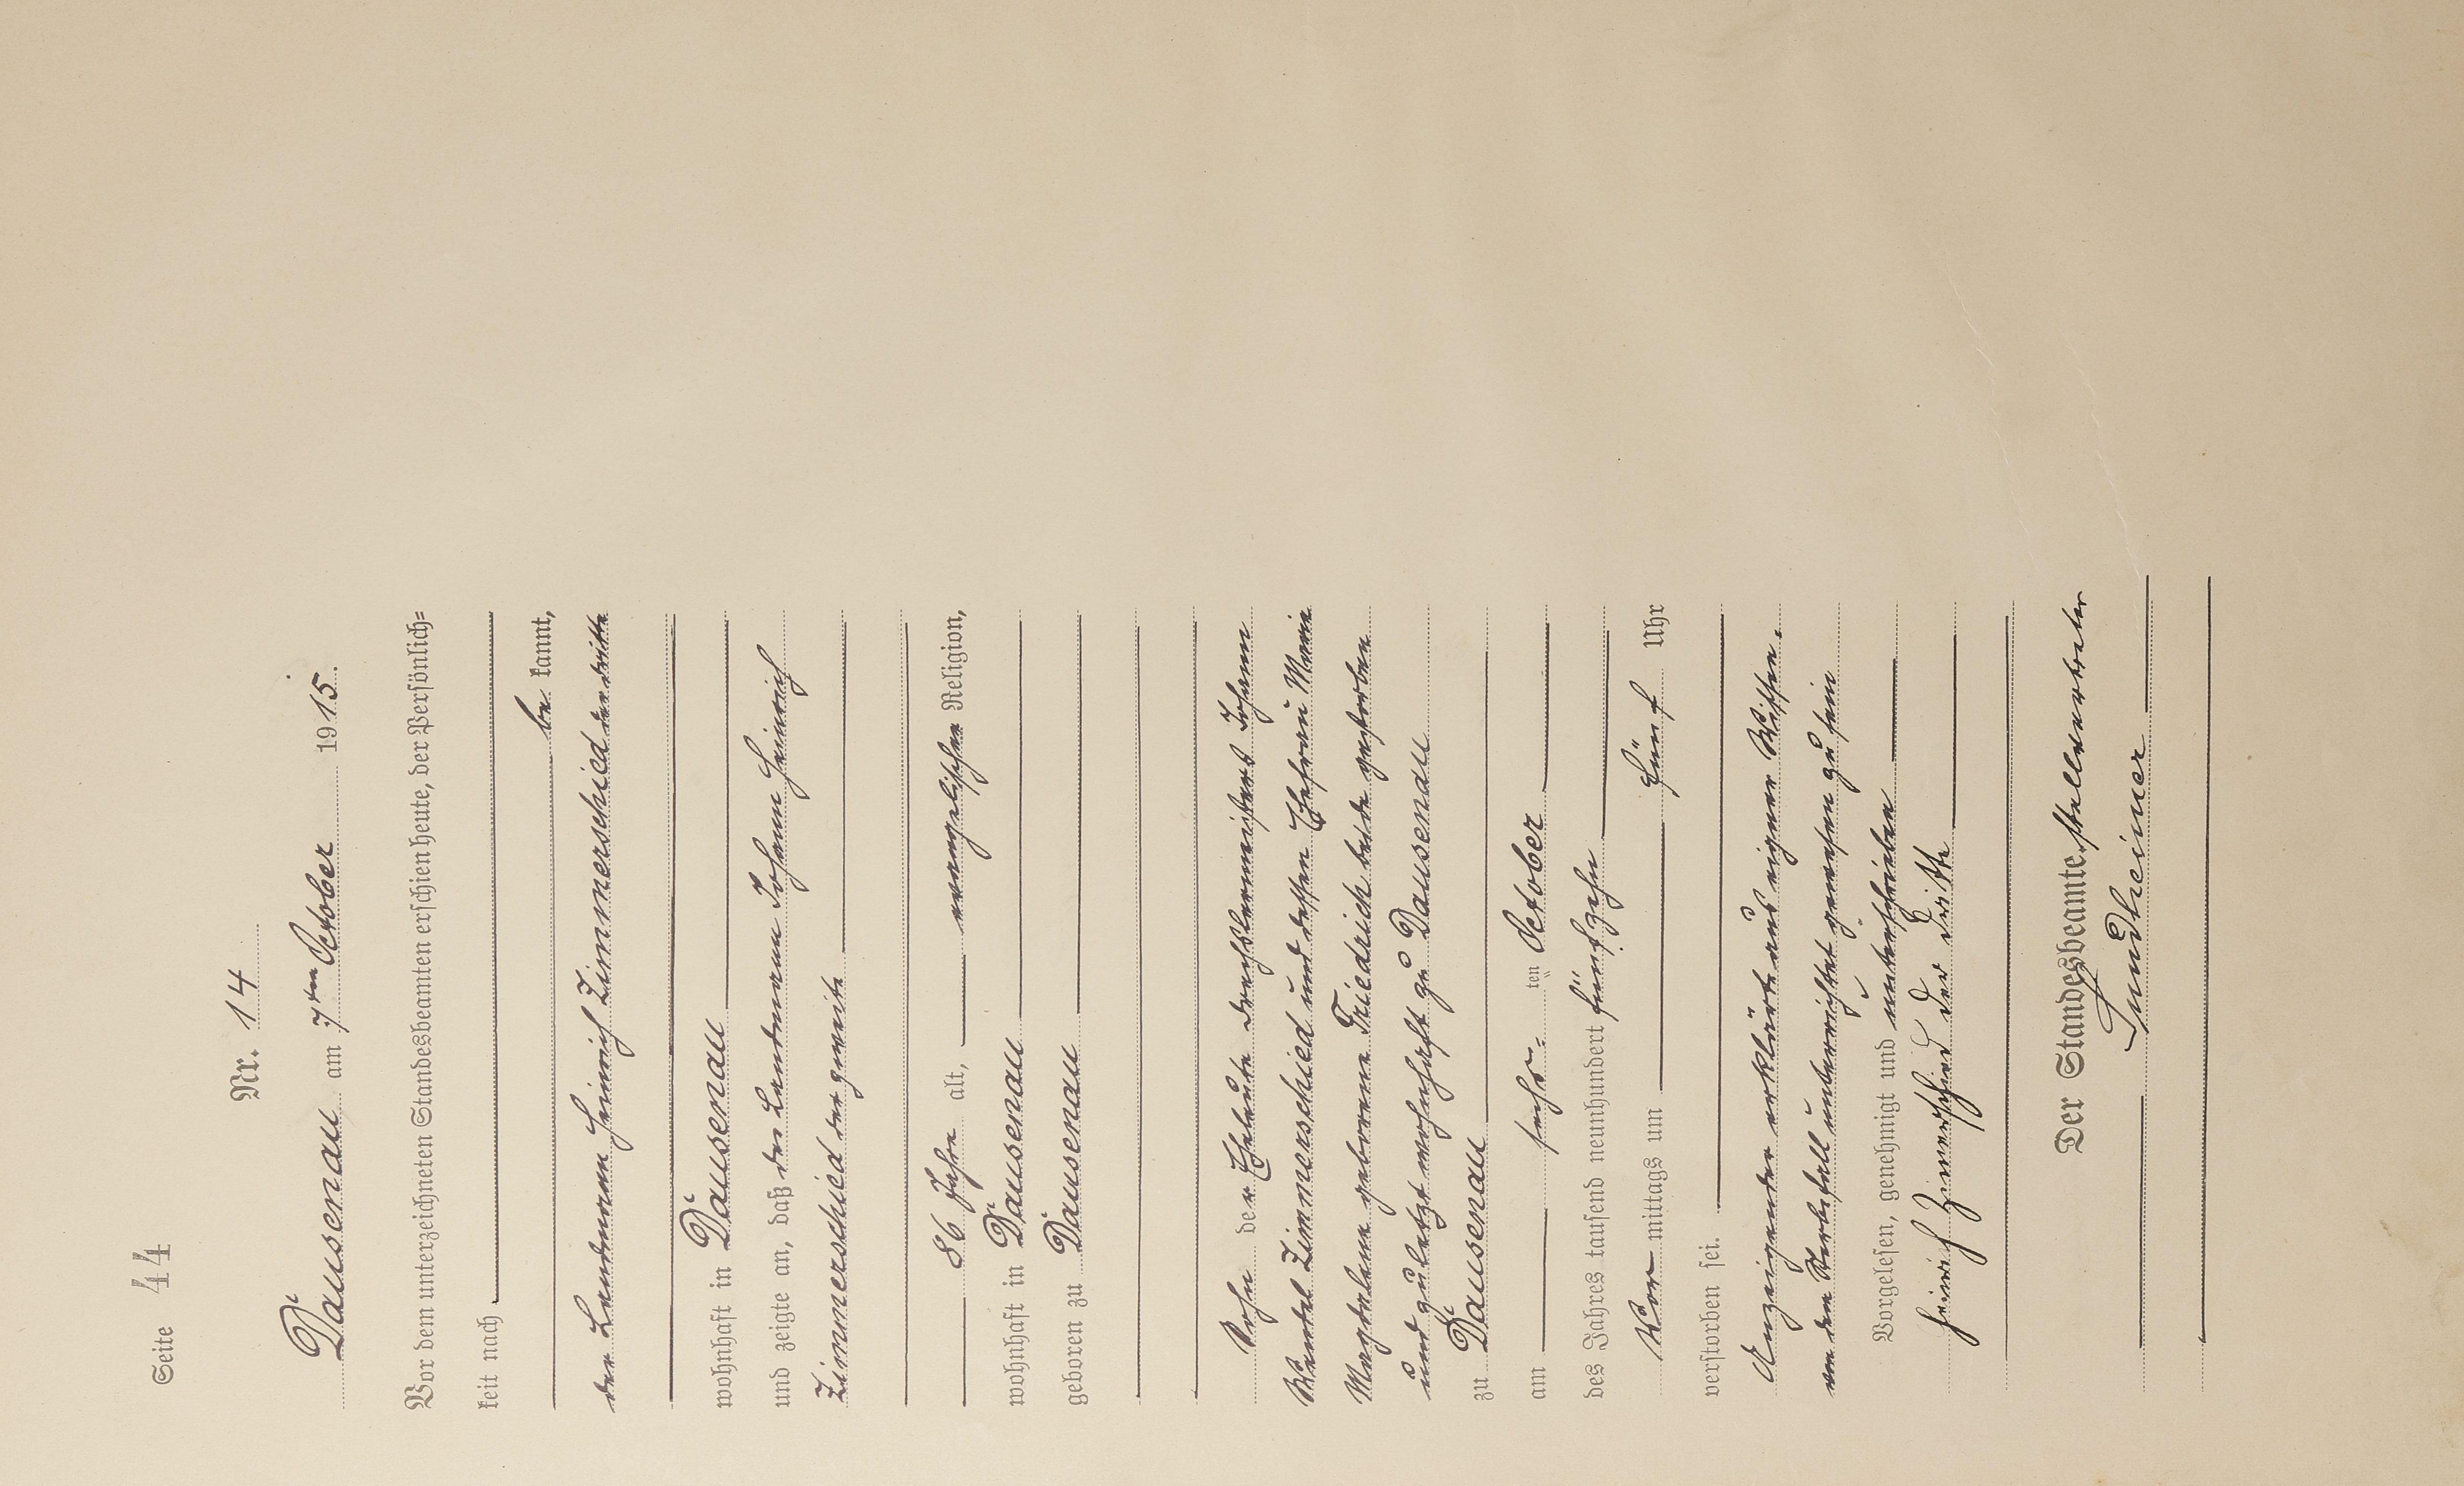 Seite 44
Nr. 14
Dausenau am 7ten October 1915.
Vor dem unterzeichneten Standesbeamten erschien heute, der Persönlich=
keit nach
be kannt,
der Landmann Heinrich Zimmerschied der dritte
wohnhaft in Dausenau
und zeigte an, daß der Landmann Johann Heinrich
Zimmerschied der zweite
86 Jahre alt, evangelischer Religion,
wohnhaft in Dausenau
geboren zu Dausenau
Sohn der Eheleute Drechslermeisters Johann
Wendel Zimmerschied und dessen Ehefrau Maria
Magdalena geborene Friedrich beide gestorben
und zuletzt wohnhaft zu Dausenau
zu Dausenau
am sechs= ten October
des Jahres tausend neunhundert fünfzehn
Vor mittags um fünf Uhr
verstorben sei.
Anzeigender erklärte aus eigener Wissen.
von dem Sterbefall unterrichtet gewesen zu sein
Vorgelesen, genehmigt und unterschrieben
Heinrich Zimerschied der dritte
Der Standesbeamte stellvertreter